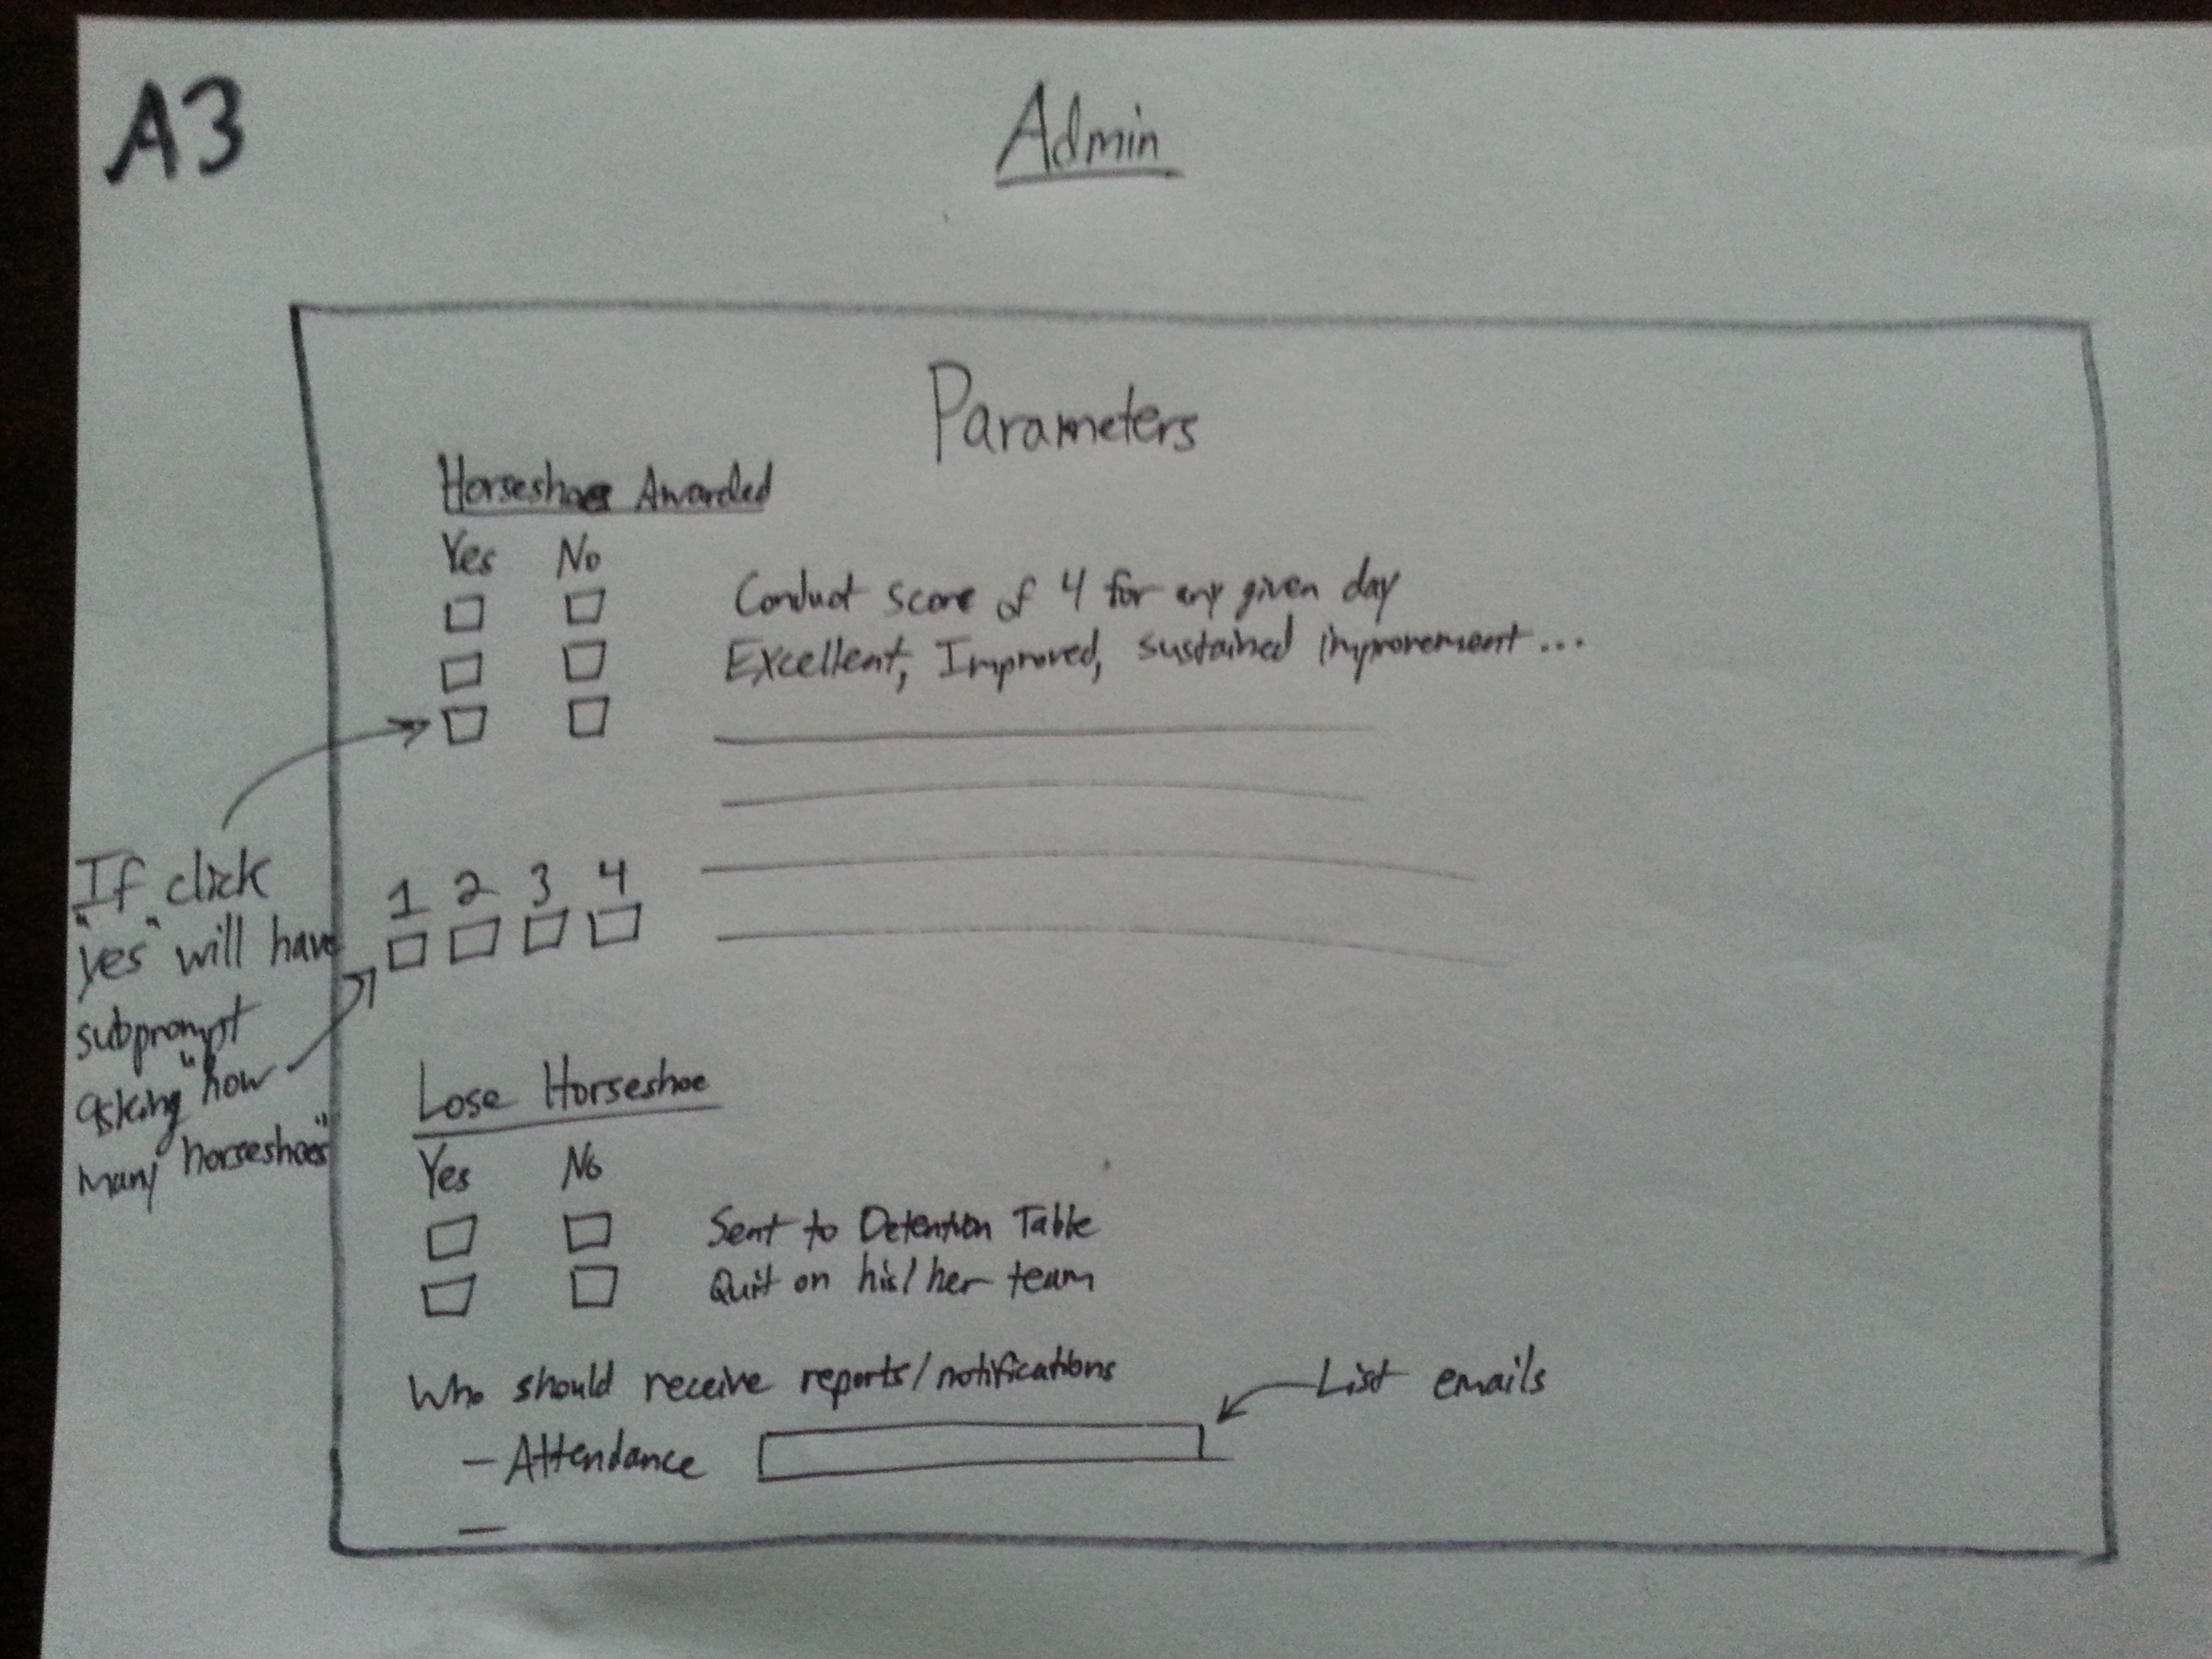 A3
Admin
Parameters
Horseshoe Awarded
Yes No
Conduct score of 4 for any given day
Excellent, Improved, sustained improvement...
If click
"yes" will have
subprompt
asking "how
many horseshoes"
1 2 3 4
Lose Horseshoe
Yes No
Sent to Detention Table
Quit on his/her team
Who should receive reports/notifications
List emails
- Attendance
-